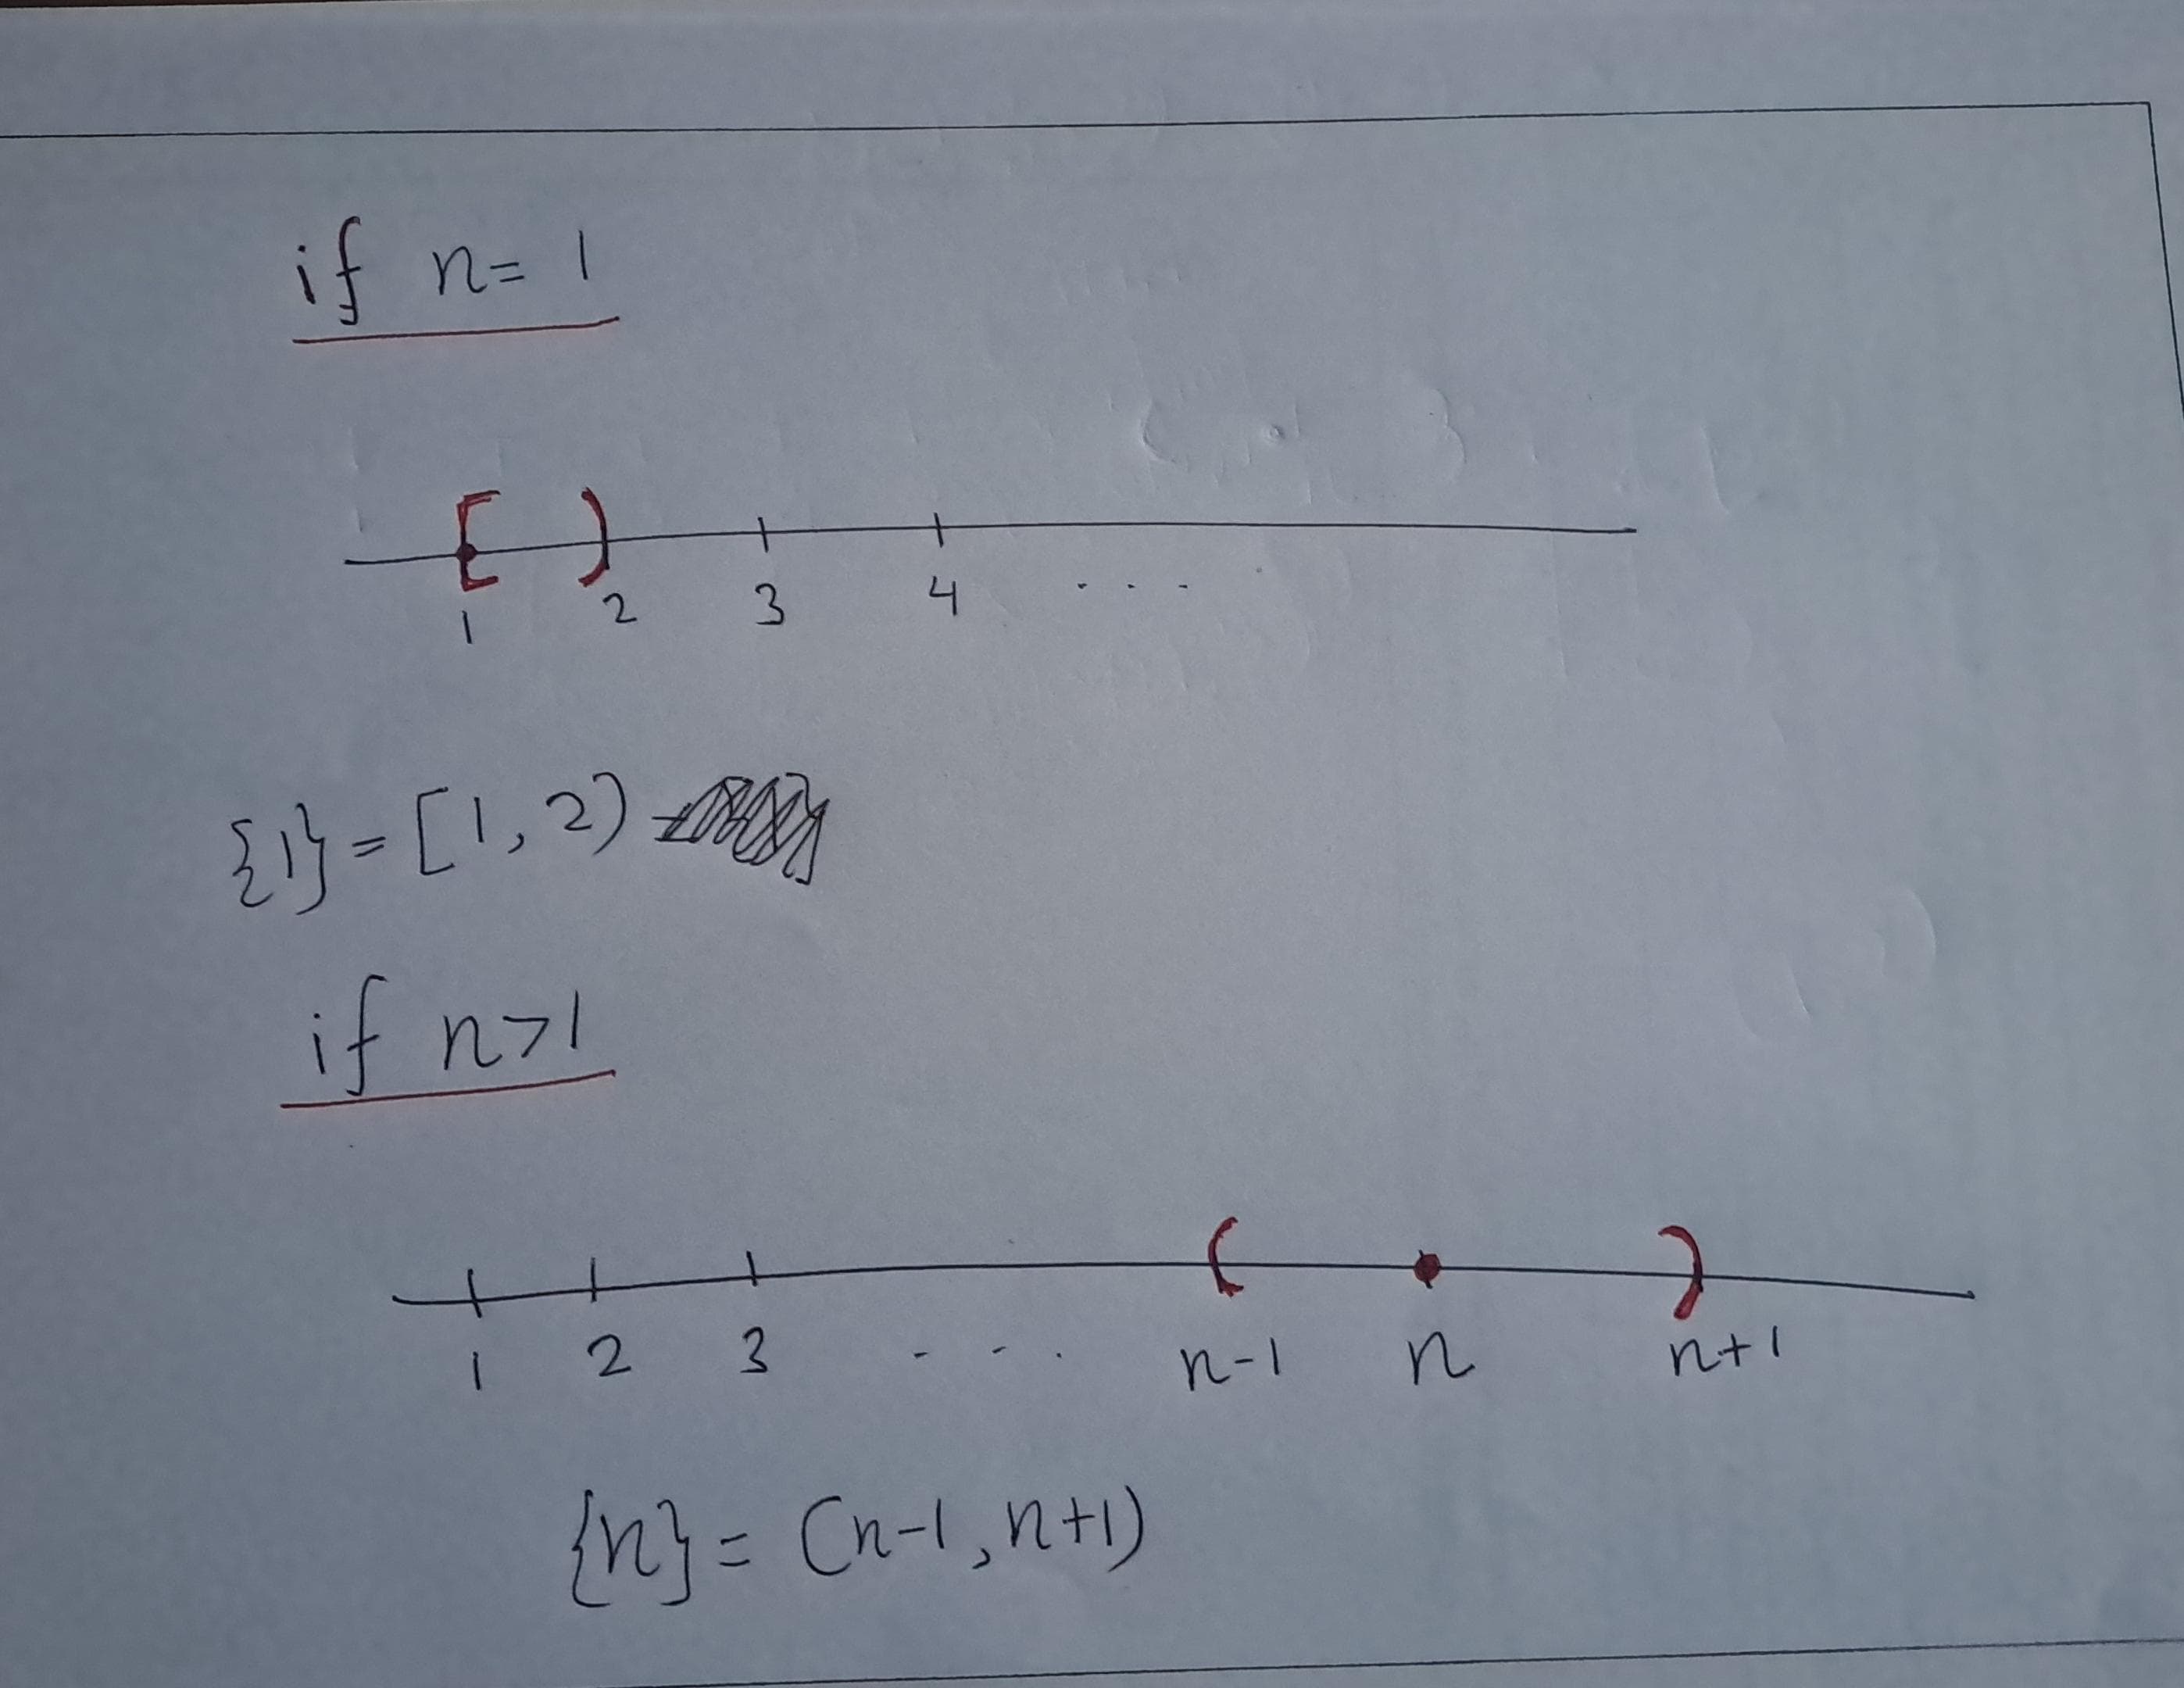 if n= 1
1 2 3 4 . . .
{1} = [1, 2)
if n>1
1 2 3 . . . n-1 n n+1
{n} = (n-1, n+1)